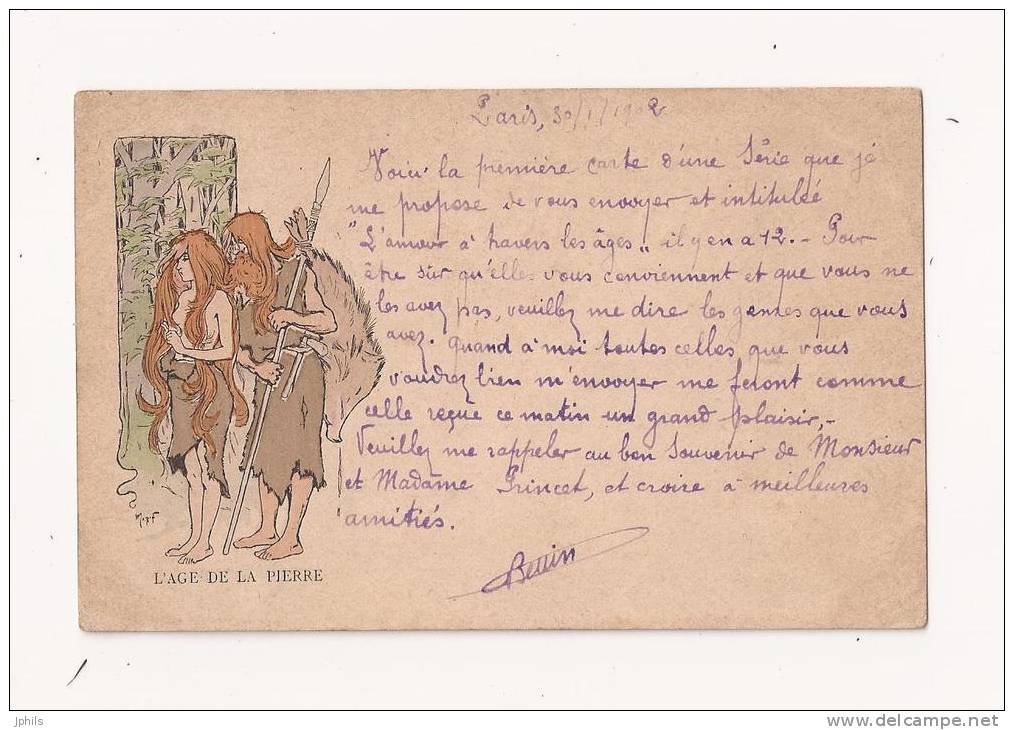 Paris, 30/1/1902
Voici la première carte d'une Série que je
me propose de vous envoyer et intitulée
"L'amour à travers les âges" il y en a 12. - Pour
être sûr qu'elles vous conviennent et que vous ne
les avez pas, veuillez me dire les genres que vous
avez. Quand à moi toutes celles que vous
voudrez bien m'envoyer me feront comme
celle reçue ce matin un grand plaisir. -
Veuillez me rappeler au bon Souvenir de Monsieur
et Madame Princet, et croire à meilleures
amitiés.
L'AGE DE LA PIERRE
jphils
www.delcampe.net